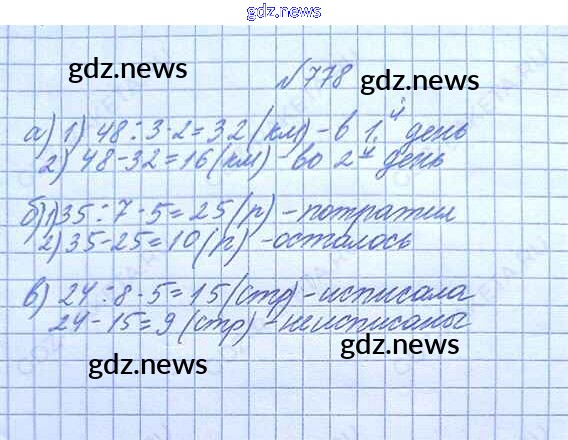 gdz.news
gdz.news
№778
gdz.news
а) 1) 48:3·2=32 (км) – в 1й день
2) 48-32=16 (км) – во 2й день
б) 1) 35:7·5=25 (р) – потратил
2) 35-25=10 (р) – осталось
в) 24:8·5=15 (стр) – исписала
24-15=9 (стр) – неисписаны
gdz.news
gdz.news